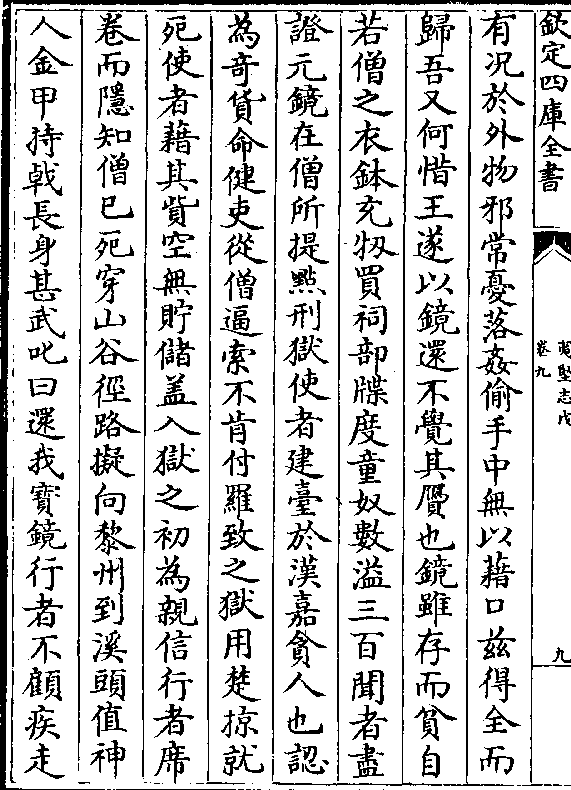 欽定四庫全書
夷堅志戊
卷九
九
有況於外物邪常憂落姦偷手中無以藉口兹得全而
歸吾又何惜王遂以鏡還不覺其贗也鏡雖存而貧自
若僧之衣鉢充牣買祠部牒度童奴數溢三百聞者盡
證元鏡在僧所提㸃刑獄使者建臺於漢嘉貪人也認
為奇貨命健吏從僧逼索不肯付羅致之獄用楚掠就
死使者藉其貲空無貯儲盖入獄之初為親信行者席
卷而隱知僧已死穿山谷徑路擬向黎州到溪頭值神
人金甲持戟長身甚武叱曰還我寶鏡行者不顧疾走